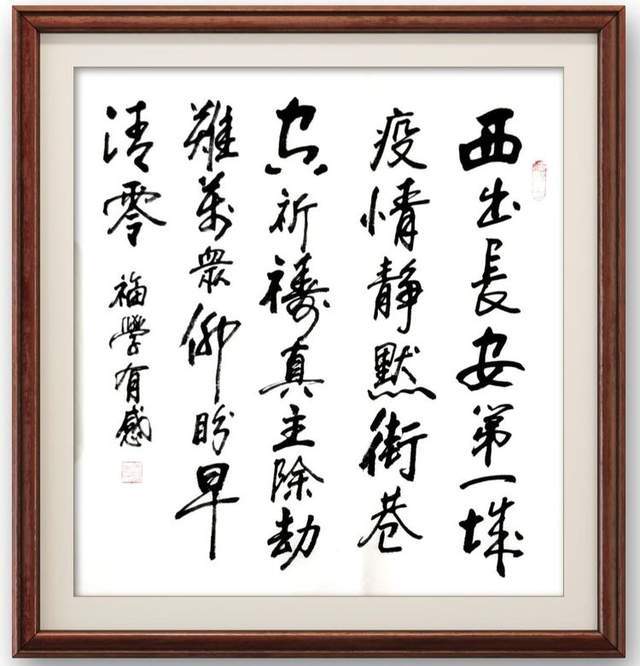 西出長安第一城
疫情靜默街巷
空祈禱真主除劫
難萬衆仰盼早
清零
福學有感